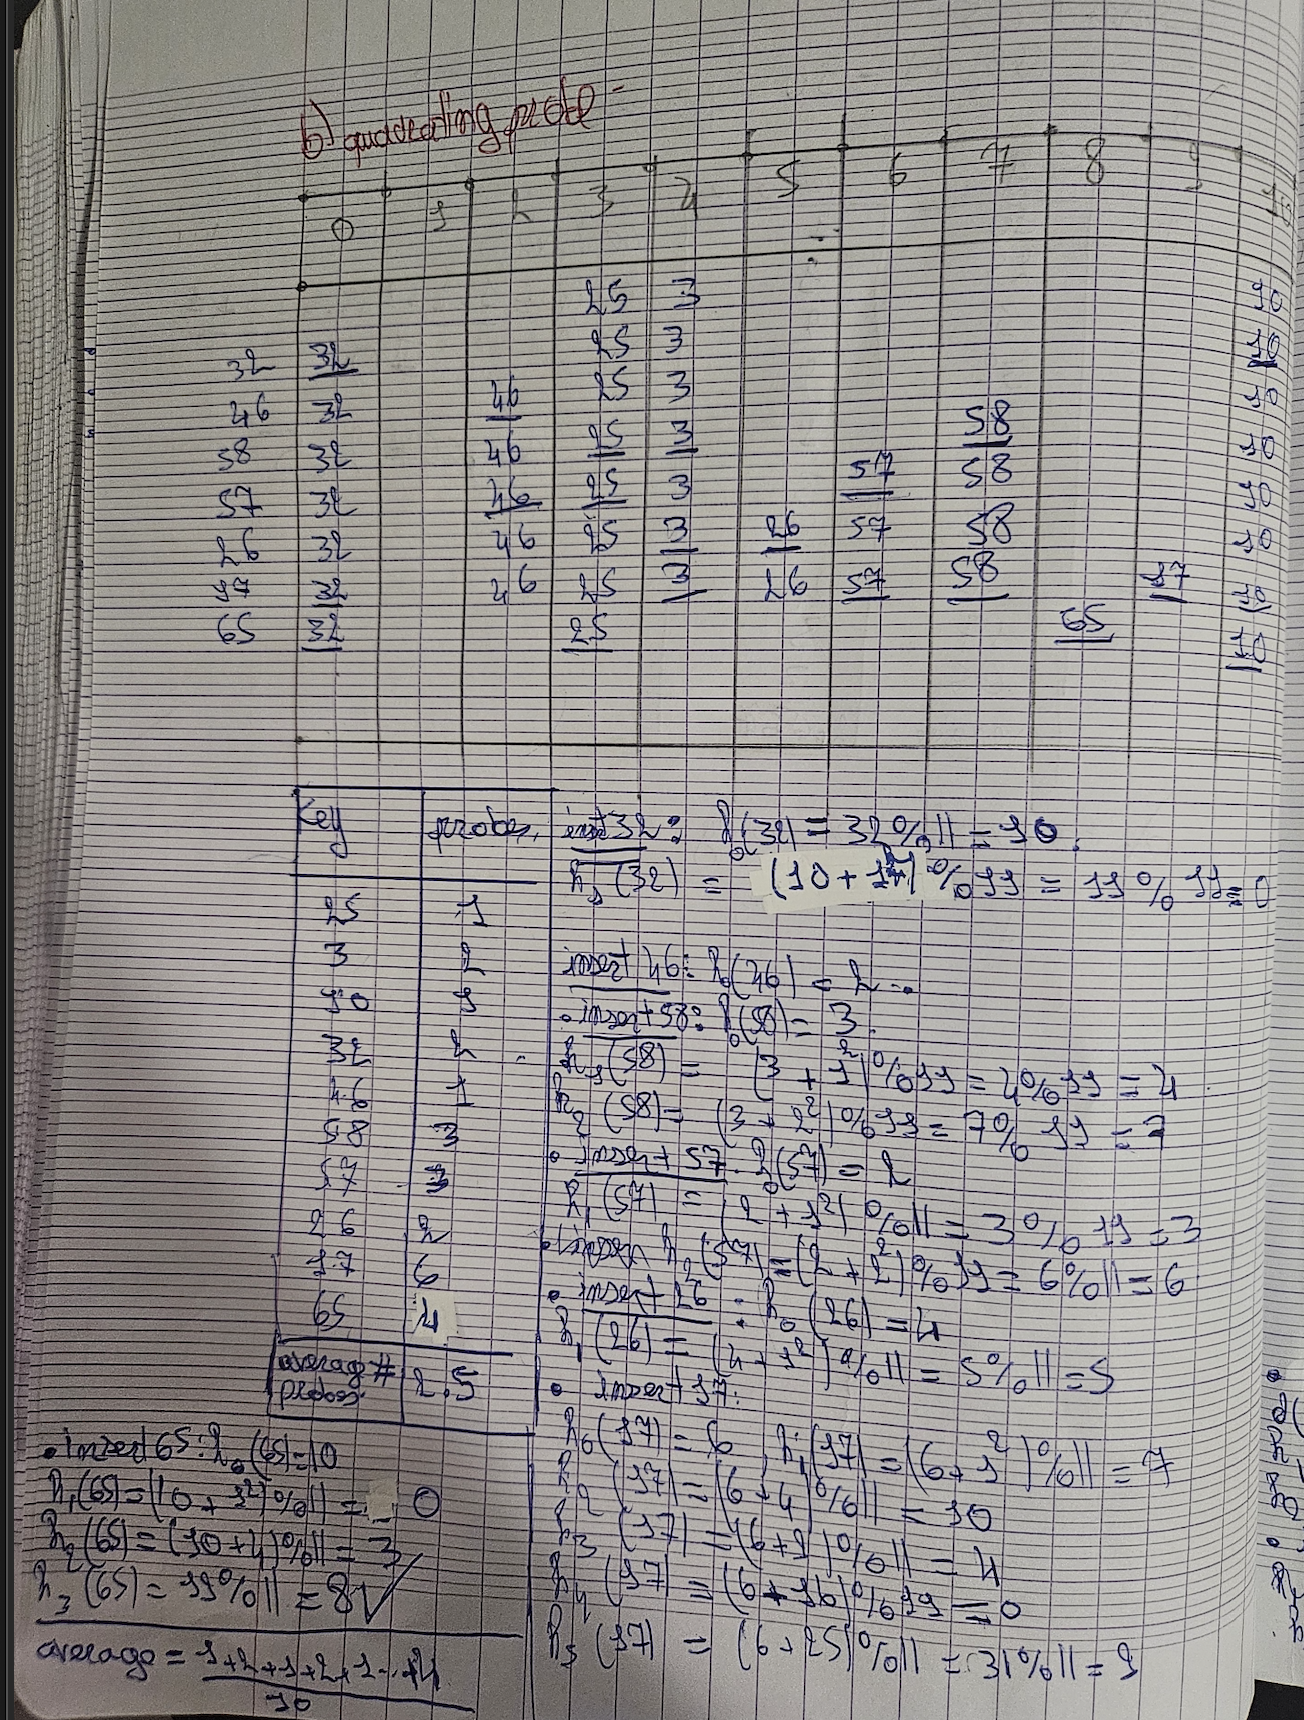 b) quadrating probe
0 1 2 3 4 5 6 7 8 9 10
25 3 10
32 32 25 3 10
46 32 46 25 3 10
58 32 46 25 3 58 10
57 32 46 25 3 57 58 10
26 32 46 25 3 26 57 58 10
17 32 46 25 3 26 57 58 17 10
65 32 25 65 10
Key probes
25 1
3 2
10 1
32 2
46 1
58 3
57 3
26 2
17 6
65 4
average # probes. 2.5
insert 32: h0(32) = 32%11 = 10.
h1(32) = (10+1²)%11 = 11%11 = 0
insert 46: h0(46) = 2
• insert 58: h0(58) = 3.
h1(58) = (3+1²)%11 = 4%11 = 4
h2(58) = (3+2²)%11 = 7%11 = 7
• insert 57. h0(57) = 2
h1(57) = (2+1²)%11 = 3%11 = 3
h2(57) = (2+2²)%11 = 6%11 = 6
• insert 26: h0(26) = 4
h1(26) = (4+1²)%11 = 5%11 = 5
• insert 17:
h0(17) = 6, h1(17) = (6+1²)%11 = 7
h2(17) = (6+4)%11 = 10
h3(17) = (6+9)%11 = 4
h4(17) = (6+16)%11 = 0
h5(17) = (6+25)%11 = 31%11 = 9
• insert 65: h0(65) = 10
h1(65) = (10+1²)%11 = 0
h2(65) = (10+4)%11 = 3
h3(65) = 19%11 = 8 √
average = 1+2+1+2+1...+4
10